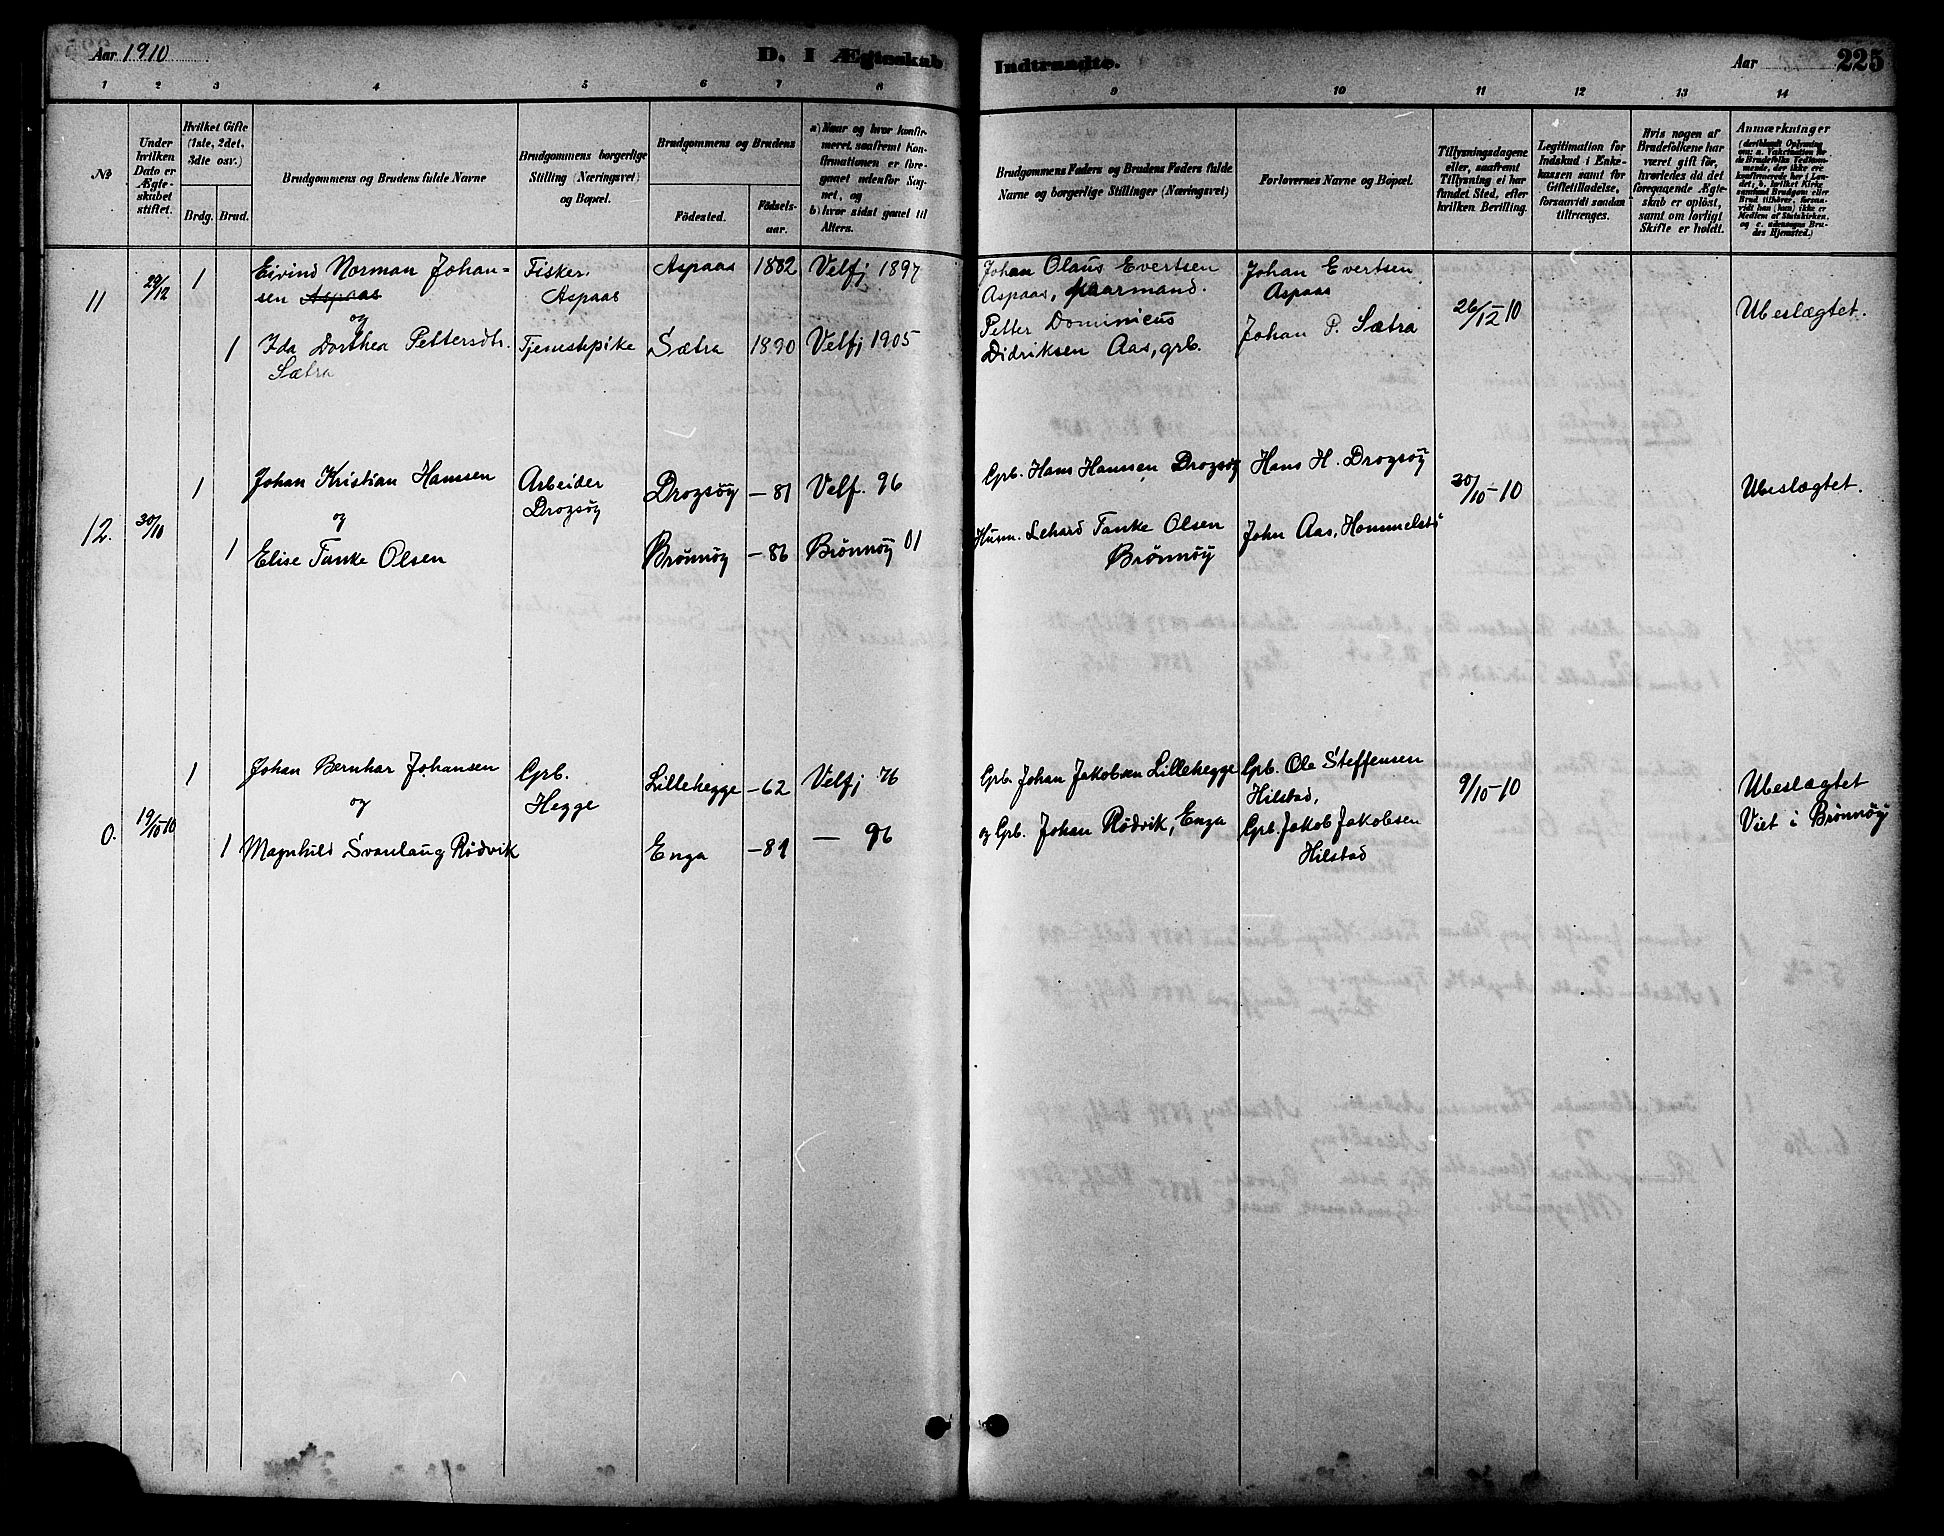 Aar 1910
D. I Ægteskab
Indtraadte.
Aar
225
1 2 3 4 5 6 7 8 9 10 11 12 13 14
No
Under hvilken Dato er Ægteskabet stiftet.
Hvilket Gifte (1ste, 2det, 3die osv.)
Brdg. Brud.
Brudgommens og Brudens fulde Navne
Brudgommens borgerlige Stilling (Næringsvei) og Bopæl.
Brudgommens og Brudens
Födested.
Födselsaar.
a) Naar og hvor konfirmeret, saafremt Konfirmationen er foregaaet udenfor Sognet, og
b) hvor sidst gaaet til Alters.
Brudgommens Faders og Brudens Faders fulde Navne og borgerlige Stillinger (Næringsvei)
Forlovernes Navne og Bopæl.
Tillysningsdagene eller, saafremt Tillysning ei har fundet Sted, efter hvilken Bevilling.
Legitimation for Indskud i Enkekassen samt for Giftetilladelse, forsaavidt saadan tiltrænges.
Hvis nogen af Brudefolkene har været gift för, hvorledes da det foregaaende Ægteskab er oplöst, samt om lovligt Skifte er holdt.
Anmærkninger
11
29/12
1
Eivind Norman Johan=
sen Aspaas
og
1
Ida Dorthea Pettersdtr.
Sætra
Fisker.
Aspaas
Tjenestepike
Aspaas 1882 Velfj 1897
Sætra 1890 Velfj 1905
Johan Olaus Evertsen
Aspaas, gaarmand.
Petter Dominicus
Didriksen Aas, grb.
Johan Evertsen
Aspaas
Johan P. Sætra
26/12-10
Ubeslægtet.
12.
30/10
1
Johan Kristian Hansen
og
1
Elise Tanke Olsen
Arbeider
Drogsöy
Drogsöy -81 Velf. 96
Brönnöy -86 Brönnöy 01
Gprb. Hans Hansen Drogsöy
Husm. Lehard Tanke Olsen
Brönnöy
Hans H. Drogsöy
John Aas, Hommelstö
30/10-10
Ubeslægtet.
0.
19/10-10
1
Johan Bernhar Johansen
og
1
Magnhild Svanlaug Rödvik
Gprb.
Hegge
Lillehegge -62 Velfj 76
Enga -81 — 96
Gprb. Johan Jakobsen Lillehegge
og Gprb. Johan Rödvik, Enga
Gprb. Ole Steffensen
Hilstad,
Gprb. Jakob Jakobsen
Hilstad
9/10-10
Ubeslægtet
Viet i Brönnöy